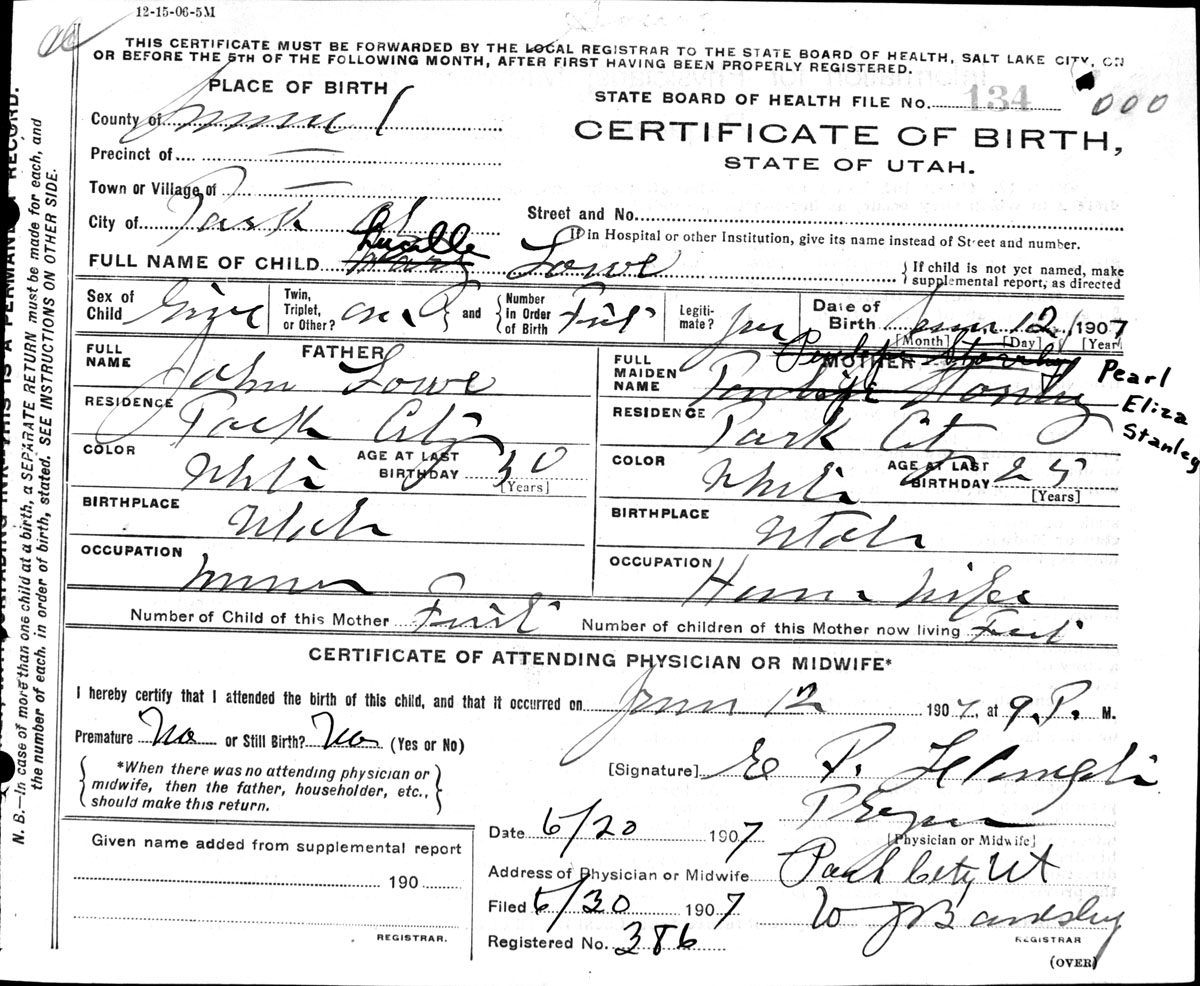 12-15-06-5M
THIS CERTIFICATE MUST BE FORWARDED BY THE LOCAL REGISTRAR TO THE STATE BOARD OF HEALTH, SALT LAKE CITY, ON
OR BEFORE THE 5TH OF THE FOLLOWING MONTH, AFTER FIRST HAVING BEEN PROPERLY REGISTERED.
PLACE OF BIRTH
STATE BOARD OF HEALTH FILE No. 134 000
County of Summit
CERTIFICATE OF BIRTH,
STATE OF UTAH.
Precinct of —
Town or Village of —
City of Park City
Street and No.
If in Hospital or other Institution, give its name instead of Street and number.
Lucille
FULL NAME OF CHILD Mary Lowe
If child is not yet named, make
supplemental report, as directed
Sex of Child Girl
Twin, Triplet, or Other? and Number in Order of Birth First
Legitimate? Yes
Date of Birth June 12, 1907
[Month] [Day] [Year]
FATHER
FULL NAME John Lowe
RESIDENCE Park City
COLOR White AGE AT LAST BIRTHDAY 30
[Years]
BIRTHPLACE Utah
OCCUPATION Miner
MOTHER
FULL MAIDEN NAME
Pearl
Eliza
Stanley
RESIDENCE Park City
COLOR White AGE AT LAST BIRTHDAY 25
[Years]
BIRTHPLACE Utah
OCCUPATION House Wife
Number of Child of this Mother First Number of children of this Mother now living First
CERTIFICATE OF ATTENDING PHYSICIAN OR MIDWIFE*
I hereby certify that I attended the birth of this child, and that it occurred on June 12 1907, at 9 P. M.
Premature No or Still Birth? No (Yes or No)
*When there was no attending physician or
midwife, then the father, householder, etc.,
should make this return.
[Signature] E P
[Physician or Midwife]
Date 6/20 1907
Address of Physician or Midwife Park City Ut
Filed 6/30 1907 W J
REGISTRAR
Registered No. 386
(OVER)
Given name added from supplemental report
190
REGISTRAR.
RECORD.
N. B.—In case of more than one child at a birth, a SEPARATE RETURN must be made for each, and
the number of each, in order of birth, stated. SEE INSTRUCTIONS ON OTHER SIDE.